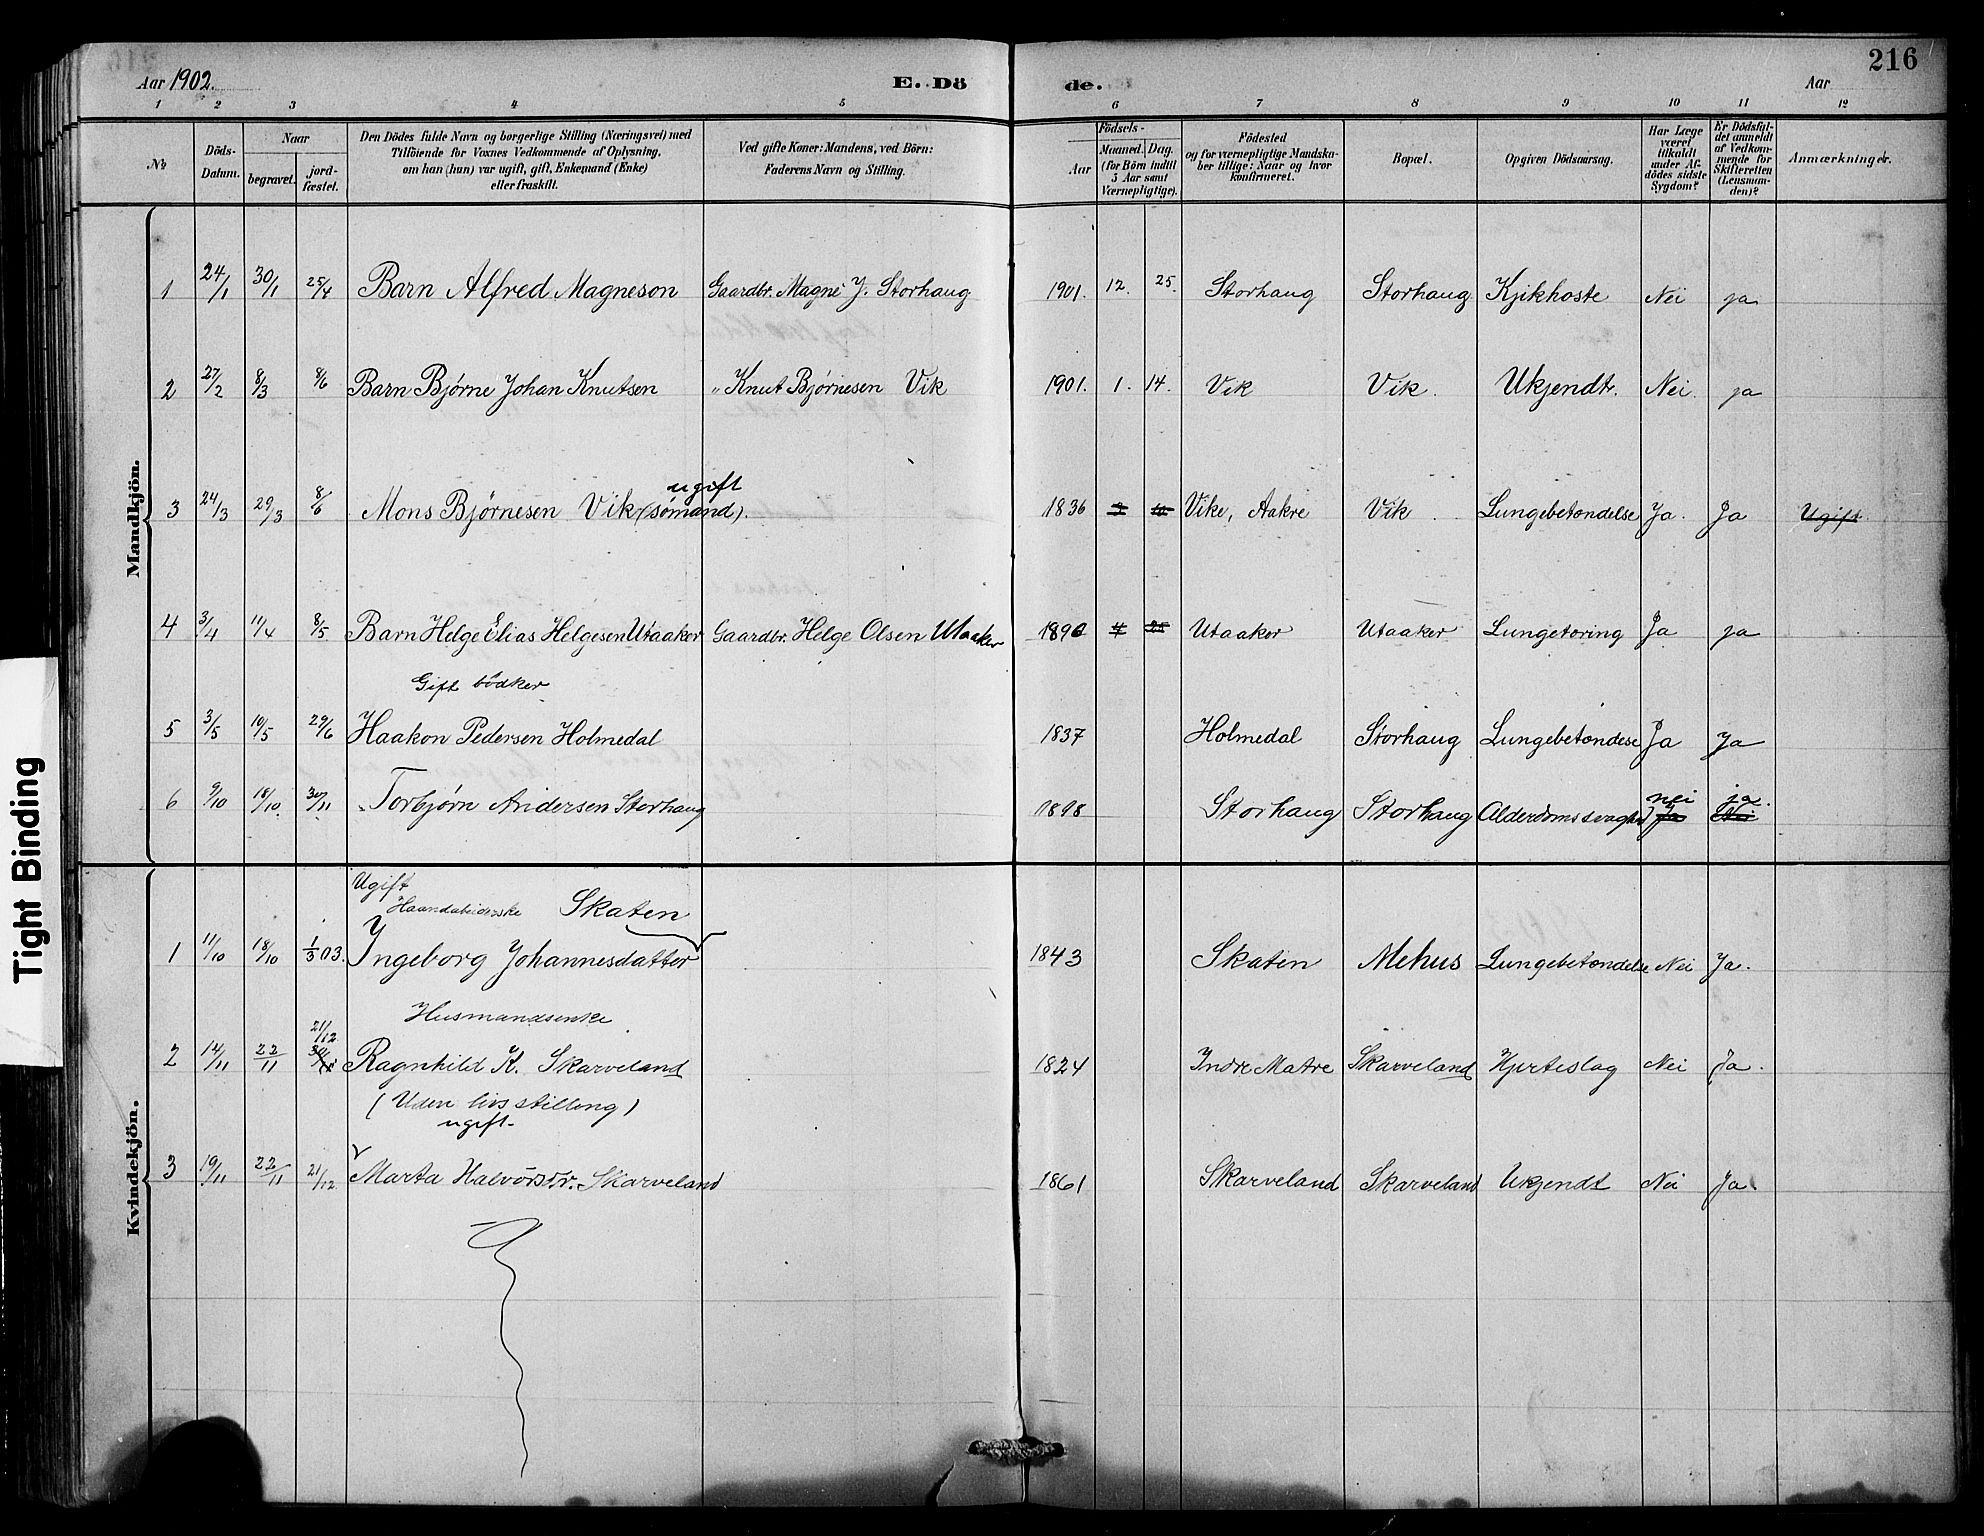 216
Aar 1902. E. Dö de. Aar
1 2 3 4 5 6 7 8 9 10 11 12
No
Döds-Datum.
Naar
begravet.
jord-fæstet.
Den Dödes fulde Navn og borgerlige Stilling (Næringsvei) med
Tilföiende for Voxnes Vedkommende af Oplysning,
om han (hun) var ugift, gift, Enkemand (Enke)
eller fraskilt.
Ved gifte Koner: Mandens, ved Börn:
Faderens Navn og Stilling.
Födsels-
Aar
Maaned. Dag.
(for Börn indtil
5 Aar samt
Værnepligtige).
Födested
og for værnepligtige Mandska-
ber tillige: Naar og hvor
konfirmeret.
Bopæl.
Opgiven Dödsaarsag.
Har Læge
været
tilkaldt
under Af-
dödes sidste
Sygdom?
Er Dödsfal-
det anmeldt
af Vedkom-
mende for
Skifteretten
(Lensman-
den)?
Anmærkninger.
Mandkjön.
1 24/1 30/1 25/4 Barn Alfred Magneson Gaardbr. Magne J. Storhaug 1901. 12. 25. Storhaug Storhaug Kjikhoste Nei ja
2 27/2 8/3 8/6 Barn Bjørne Johan Knutsen " Knut Bjørnesen Vik 1901. 1. 14. Vik Vik. Ukjendt. Nei. ja
ugift
3 24/3 29/3 8/6 Mons Bjørnesen Vik (sømand). 1836 Vike, Aakre Vik Lungebetændelse Ja. Ja Ugift.
4 3/4 11/4 8/5 Barn Helge Elias Helgesen Utaaker Gaardbr. Helge Olsen Utaaker 1896 4 25 Utaaker Utaaker Lungetæring Ja ja
Gift bödker
5 3/5 10/5 29/6 Haakon Pedersen Holmedal 1837 Holmedal Storhaug Lungebetændese Ja Ja
nei ja.
6 9/10 18/10 30/11 Torbjørn Andersen Storhaug 1898 Storhaug Storhaug Alderdomssvaghed Ja Nei
Kvindekjön.
Ugift
Haandarbeiderske Skaten
1 11/10 18/10 1/3 03. Ingeborg Johannesdatter 1843 Skaten Mehus Lungebetændelse Nei Ja.
Husmandsenke
21/12
2 14/11 22/11 30/11 Ragnhild K. Skarveland 1824 Indre Matre Skarveland Hjerteslag Nei Ja.
(Uden livsstilling)
ugift
3 19/11 22/11 21/12 Marta Halvorsdr. Skarveland 1861 Skarveland Skarveland Ukjendt Nei Ja.
Tight Binding